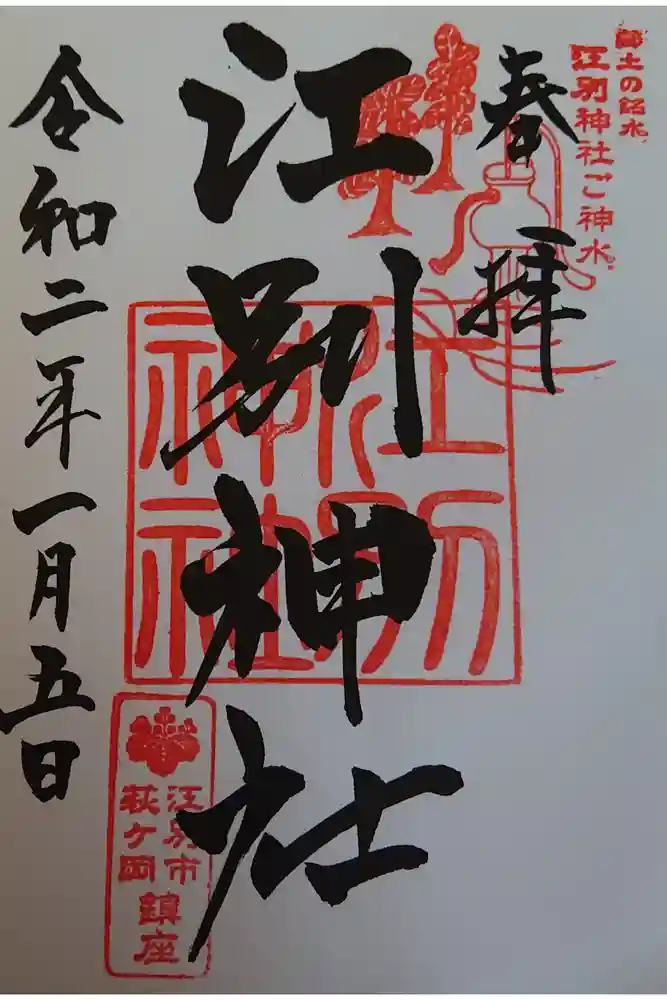 郷土の銘水
江別神社ご神水
奉拝
江別神社
江別
神社
江別市
萩ヶ岡
鎮座
令和二年一月五日